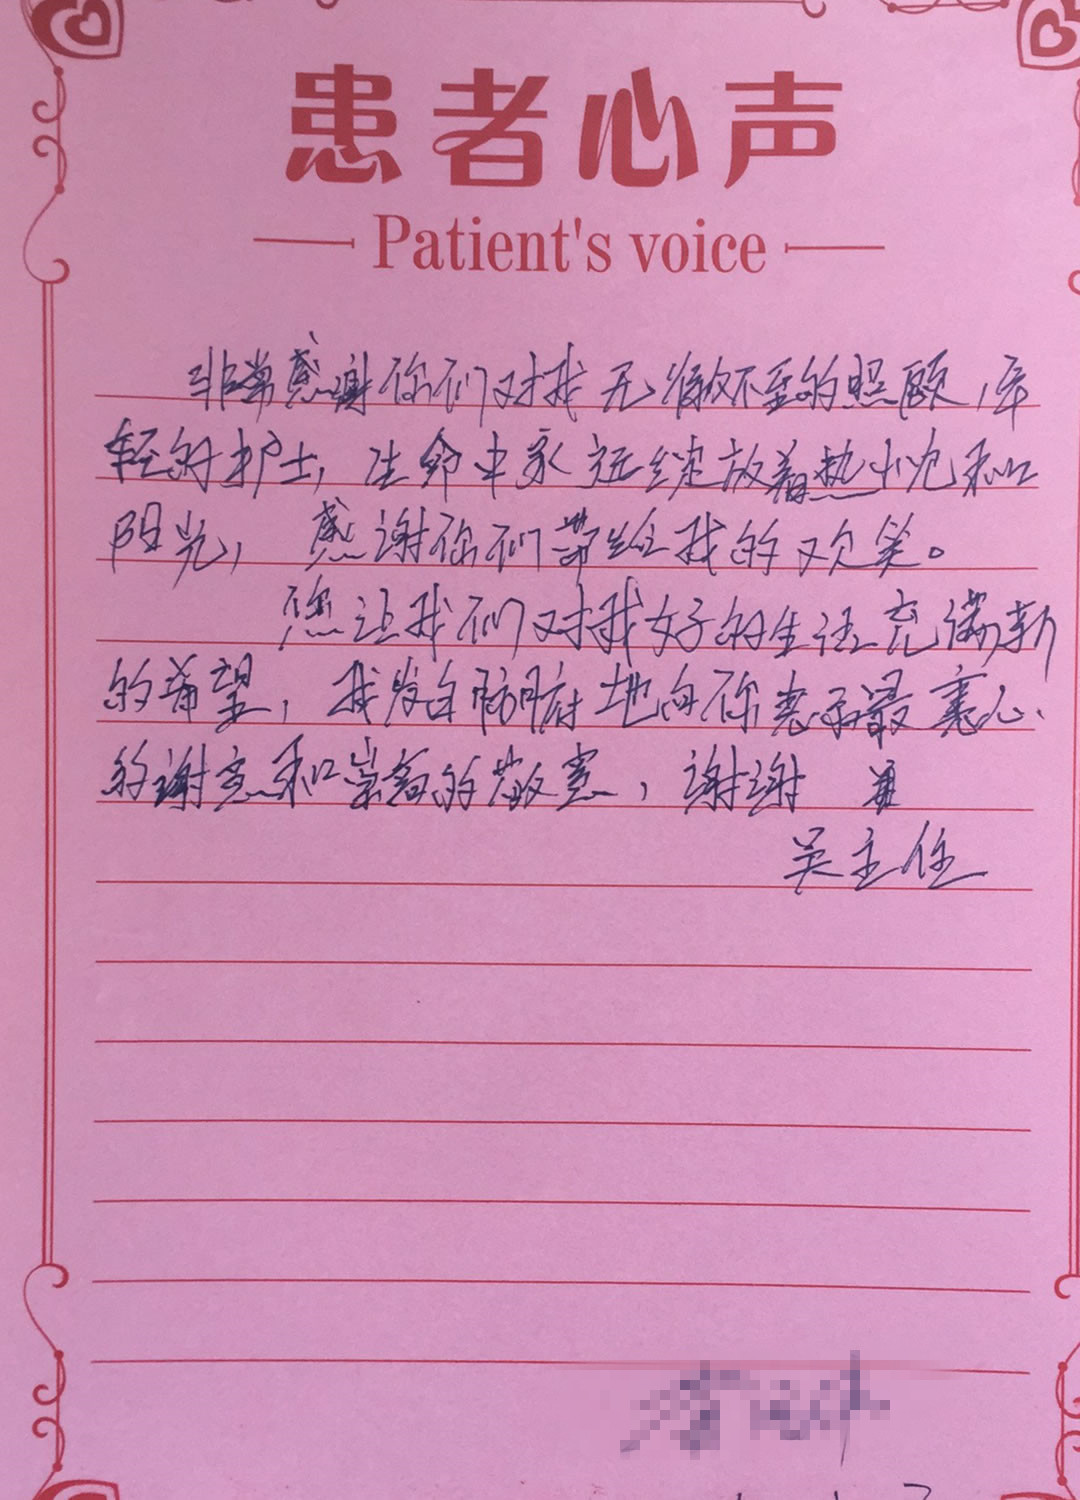 患者心声
Patient's voice
非常感谢你们对我无微不至的照顾,年
轻的护士,生命中永远绽放着热忱和
阳光,感谢你们带给我的欢笑。
您让我们对我好的生活充满新
的希望,我发自肺腑地向你表示最衷心
的谢意和崇高的敬意,谢谢
吴主任